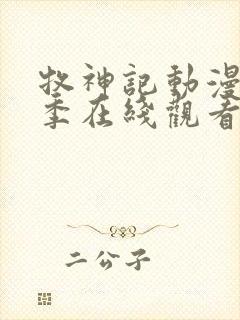 牧神記動漫
季在綫觀看
二公子